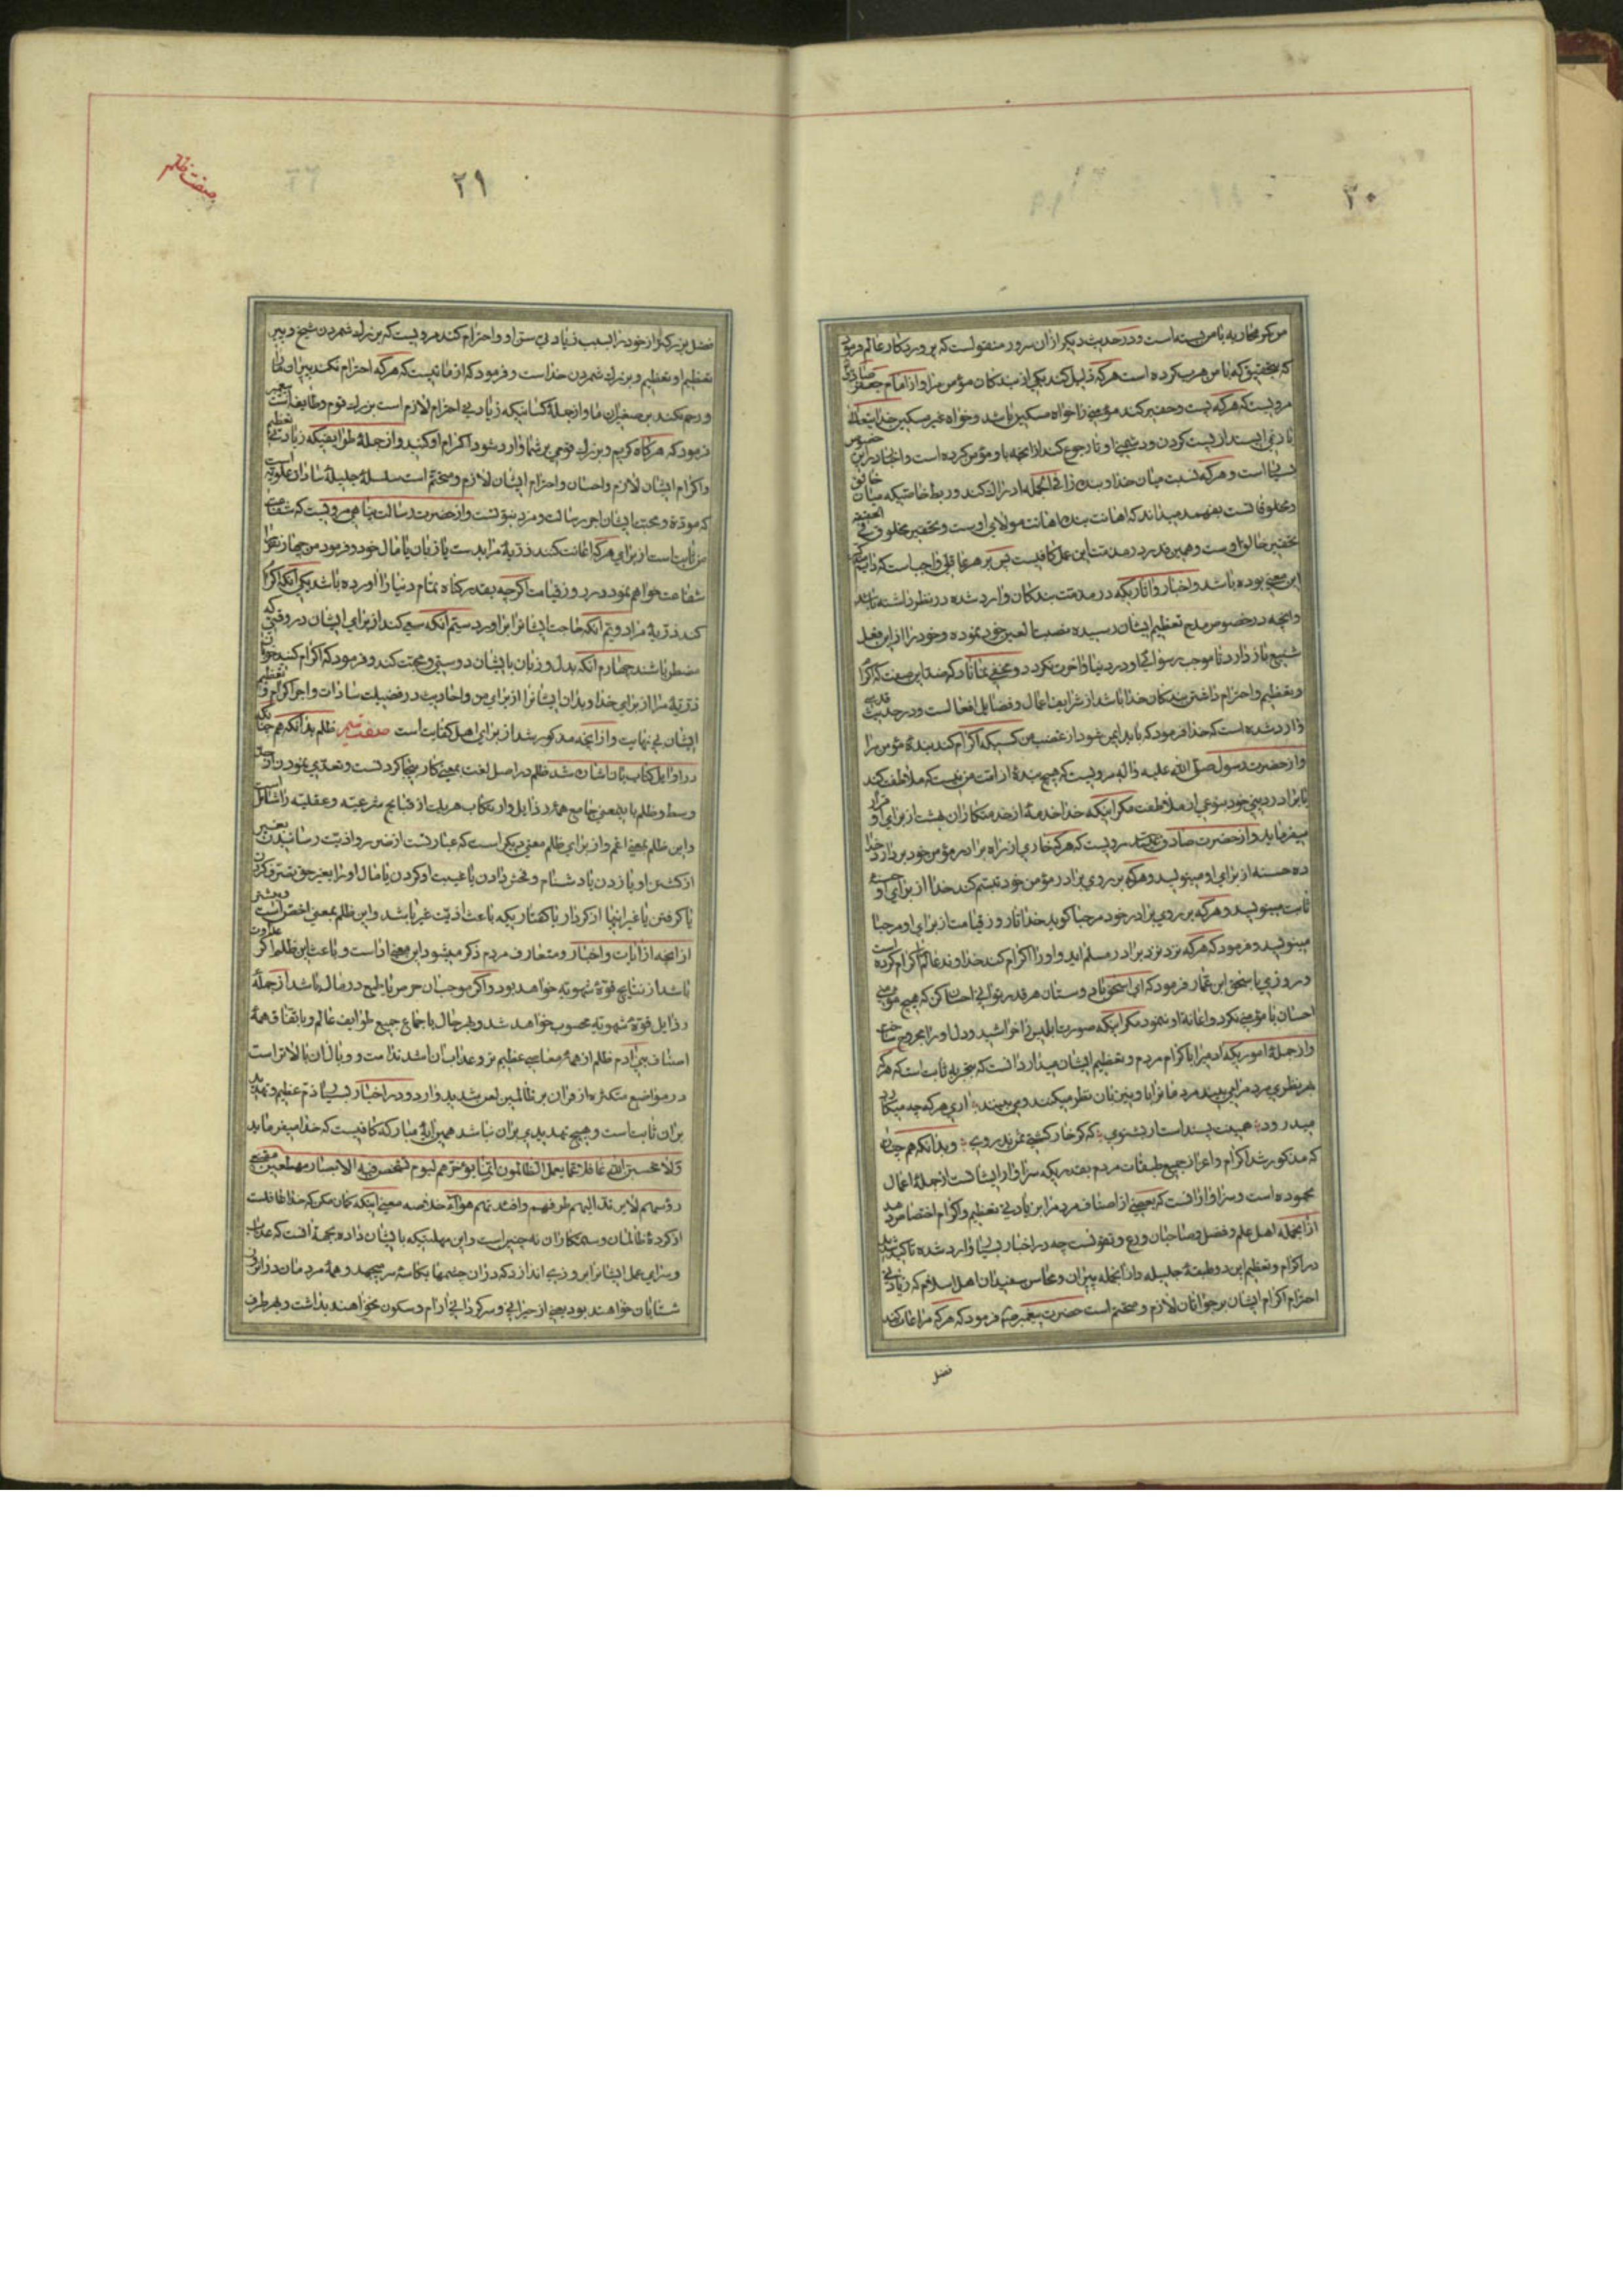 ۳۰
من کمر محاربه با من بسته است و در حدیث دیگر از آن سرور منقولست که پروردگار عالم فرمود
که بتحقیق که با من حرب کرده است هرکه ذلیل کند یکی از بندگان مؤمن مرا و از امام جعفر صادق
مرویست که هرکه پست و حقیر کند مؤمنی را خواه مسکین باشد و خواه غیر مسکین خدایتعالی
باز نمی ایستد از پست کردن و دشمنی او تا رجوع کند از آنچه با او مؤمن کرده است و اخبار در این خصوص
بسیار است و هرکه نسبت میان خدا و بنده را فی الجمله ادراک کند و ربط خاصیکه میان خالق
و مخلوق است بفهمد میداند که اهانت بنده اهانت مولای اوست و تحقیر مخلوق فی الحقیقه
تحقیر خالق اوست و همین قدر در مذمت این عمل کافیست پس بر هر عاقلی واجبست که
این معنی بوده باشد و اخبار و آثاریکه در مذمت بندگان وارد شده در نظر داشته باشد
و آنچه در خصوص مدح تعظیم ایشان رسیده نصب العین خود نموده و خود را از این فعل
شنیع باز دارد تا موجب رسوائی او در دنیا و آخرت نگردد و مخفی نماناد که ضد این صفت که اکرام
و تعظیم و احترام داشتن بندگان خدا باشد از شرایف اعمال و فضایل افعالست و در حدیث قدسی
وارد شده است که خدا فرمود که باید ایمن شود از غضب من کسیکه اکرام کند بنده مؤمن مرا
و از حضرت رسول صلی الله علیه و آله مرویست که هیچ بنده از امت من نیست که ملاطفت کند
با برادر دینی خود بنوعی از ملاطفت مگر اینکه خدا خدمه از خدمتکاران بهشت از برای او
میفرماید و از حضرت صادق علیه السلام مرویست که هرکه خاری از راه برادر مؤمن خود بردارد خدا
ده حسنه از برای او مینویسد و هرکه بر روی برادر مؤمن خود تبسم کند خدا از برای او حسنه
ثابت مینویسد و هرکه بر روی برادر خود مرحبا گوید خدا تا روز قیامت از برای او مرحبا
مینویسد و فرمود که هرکه نزد برادر مسلم آید و او را اکرام کند خداوند عالم را اکرام کرده است
و روزی باسحق ابن عمار فرمود که ای اسحق با دوستان هر قدر توانی احسان کن که هیچ مؤمنی
احسان با مؤمنی نکرد و اعانه او ننمود مگر اینکه صورت ابلیس را خراشید و دل او را مجروح ساخت
و از جمله اموریکه آدمی را باکرام مردم و تعظیم ایشان میدارد آنست که بتجربه ثابت است که هرکس
بهر نظری مردم را می بیند مردمان او را به همان نظر میکنند و می بینند آری هر که چه میکارد
میدرود همینت پسند است ار بشنوی که گر خار کشتی سمن ندروی و بدانکه همچنان
که مذکور شد اکرام و اعزاز جمیع طبقات مردم بقدریکه سزاوار ایشانست از جمله اعمال
محموده است و سزاوار آنست که بعضی از اصناف مردم را بزیادتی تعظیم و اکرام اختصاص دهد
از آنجمله اهل علم و فضل و صاحبان ورع و تقوی است چه در اخبار بسیار وارد شده تاکید
در اکرام و تعظیم این دو طبقه جلیله و از آنجمله پیران و محاسن سفیدان اهل اسلام که زیادتی
احترام اکرام ایشان بر جوانان لازم و متحتم است حضرت پیغمبر فرمود که هرکه مراعات کند
فضل
صفت ظلم
۲۹
فضل بزرگتر از خود را بسبب زیادتی سن او و احترام کند مرویست که بزرگ شمردن شیخ و پیر
تعظیم او تعظیم و بزرگ شمردن خدا است و فرمود که از ما نیست که هرکه احترام نکند پیران ما را
و رحم نکند بر صغیران ما و از جمله کسانیکه زیادتی احترام لازم است بزرگ قوم و طایفه است پیغمبر
فرمود که هرگاه کریم و بزرگ قومی بر شما وارد شود اکرام او کنید و از جمله طوایفیکه زیادتی تعظیم
و اکرام ایشان لازم و احسان و احترام ایشان لازم و متحتم است سلسله جلیله سادات علویه است
که مودة و محبت ایشان اجر رسالت و مزد نبوتست و از حضرت رسالت پناهی مرویست که شفاعت
من ثابت است از برای هرکه اعانت کند ذریه مرا بدست یا زبان یا مال خود و فرمود من چهار نفر را
شفاعت خواهم نمود در روز قیامت اگرچه بقدر گناه تمام دنیا را آورده باشد یکی آنکه اکرام
کند ذریه مرا دویم آنکه حاجت ایشانرا برآورد سیم آنکه سعی کند از برای ایشان در وقتی که
مضطر باشند چهارم آنکه بدل و زبان با ایشان دوستی و محبت کند و فرمود که اکرام کنید خوبان
ذریه مرا از برای خدا و بدان ایشانرا از برای من و احادیث در فضیلت سادات و اجر اکرام و تعظیم
ایشان بی نهایت و از آنچه مذکور شد از برای اهل کفایت است صفت سیم ظلم بدانکه همچنانکه
در اوایل کتاب بآن اشاره شد ظلم در اصل لغت بمعنی کار بیجا کردنست و تعدی نمودن از حد
وسط و ظلم باین معنی جامع همه رذایل و ارتکاب هر یک از قبایح شرعیه و عقلیه را شامل است
و این ظلم بمعنی اعم و از برای ظلم معنی دیگر است که عبارتست از ضرر و اذیت رسانیدن بغیر
از کشتن او یا زدن یا دشنام و فحش دادن یا غیبت او کردن یا مال او را بغیر حق تصرف کردن
یا گرفتن یا غیر اینها از کردار یا گفتاریکه باعث اذیت غیر باشد و این ظلم بمعنی اخص است و بیشتر
از آنچه از آیات و اخبار و متعارف مردم ذکر میشود این معنی مراد است و باعث این ظلم اگر عداوت
باشد از نتایج قوه غضبیه خواهد بود و اگر موجب آن حرص یا طمع در مال باشد از جمله
رذایل قوه شهویه محسوب خواهد شد و بهر حال باجماع جمیع طوایف عالم و باتفاق همه
اصناف بنی آدم ظلم از همه معاصی عظیم تر و عذاب آن اشد ندامت و وبال آن بالاتر است
در مواضع متکثره از قران بر ظالمین لعن شدید وارد و در اخبار بسیار ذم عظیم و تهدید
بر آن ثابت است و هیچ تهدیدی بر آن نباشد همین آیه مبارکه کافیست که خدا میفرماید
ولا تحسبن الله غافلا عما یعمل الظالمون انما یؤخرهم لیوم تشخص فیه الابصار مهطعین مقنعی
رؤسهم لا یرتد الیهم طرفهم وافئدتهم هواء خلاصه معنی اینکه گمان مکن که خدا غافلست
از کرده ظالمان و ستمکاران نه چنین است و این مهلتیکه بایشان داده بجهة آنست که عذاب
و سزای عمل ایشانرا بروزی اندازد که در آن چشمها بکاسه سر میجهد و همه مردمان در آنروز
شتابان خواهند بود یعنی از حیرانی و سرگردانی آرام و سکون نخواهند داشت و بهر طرف